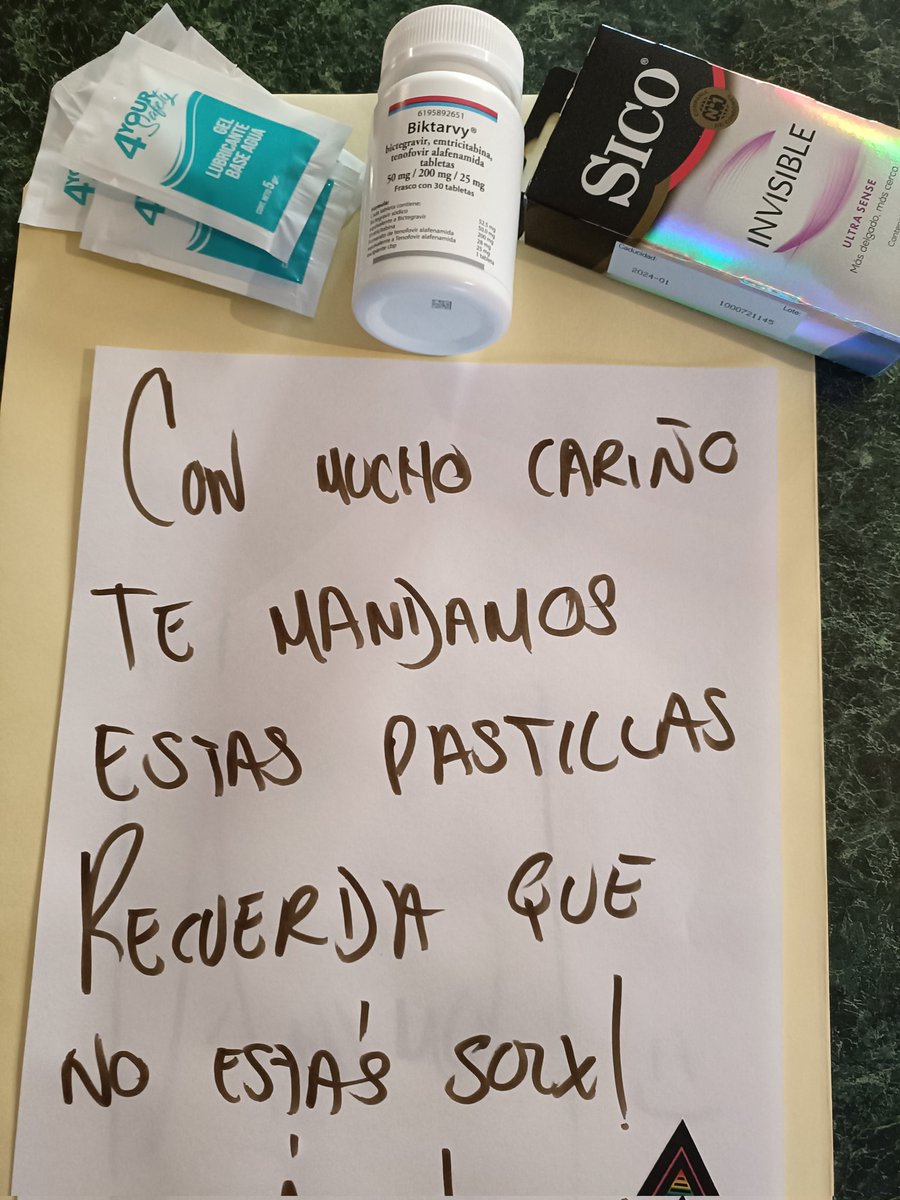 4YOUR
Safety
GEL
LUBRICANTE
BASE AGUA
CONT NETO 5 gr
6195892651
Biktarvy®
bictegravir, emtricitabina,
tenofovir alafenamida
tabletas
50 mg / 200 mg / 25 mg
Frasco con 30 tabletas
SICO®
INVISIBLE
ULTRA SENSE
Más delgado, más cerca
Caducidad:
2024-01
Lote:
1000721145
CON MUCHO CARIÑO
TE MANDAMOS
ESTAS PASTILLAS
RECUERDA QUE
NO ESTÁS SOLX!